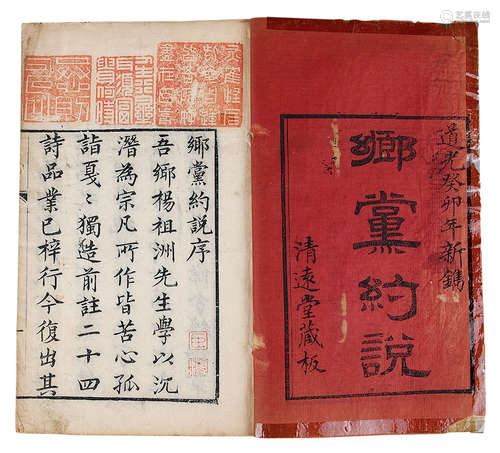 道光癸卯年新鐫
鄉黨約說
清遠堂藏板
鄉黨約說序
吾鄉楊祖洲先生學以沉
潛為宗凡所作皆苦心孤
詣戛〻獨造前註二十四
詩品業已梓行今復出其